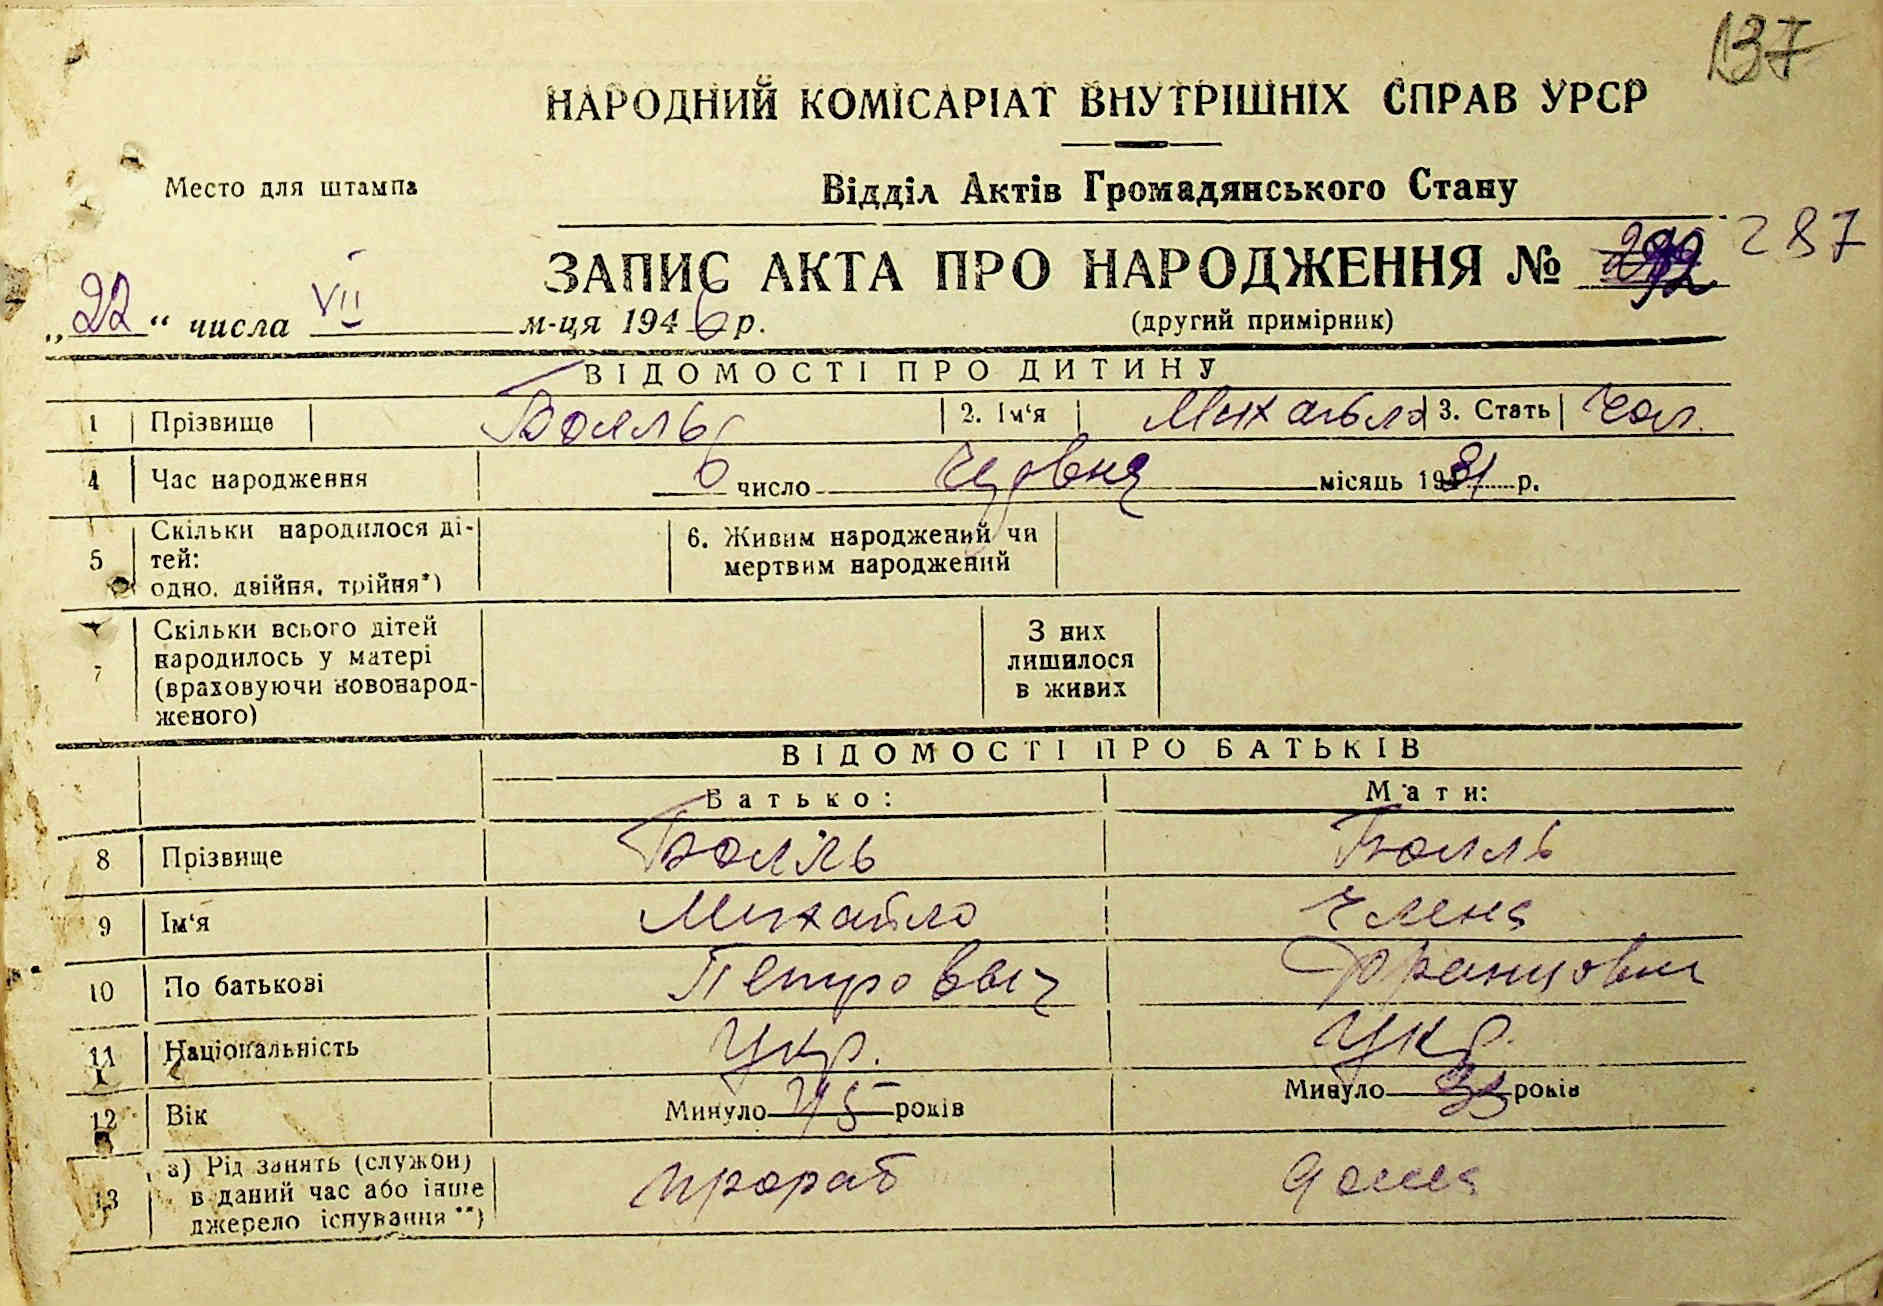 137
НАРОДНИЙ КОМІСАРІАТ ВНУТРІШНІХ СПРАВ УРСР
Место для штампа
Відділ Актів Громадянського Стану
ЗАПИС АКТА ПРО НАРОДЖЕННЯ № 287
„22“ числа VII м-ця 1946 р.
(другий примірник)
ВІДОМОСТІ ПРО ДИТИНУ
1 Прізвище Болль 2. Ім‘я Михайло 3. Стать Чол.
4 Час народження 6 число Червня місяць 1931 р.
5 Скільки народилося ді-
тей:
одно, двійня, трійня*)
6. Живим народжений чи
мертвим народжений
7 Скільки всього дітей
народилось у матері
(враховуючи новонарод-
женого)
З них
лишилося
в живих
ВІДОМОСТІ ПРО БАТЬКІВ
Батько: Мати:
8 Прізвище Болль Болль
9 Ім‘я Михайло Єлена
10 По батькові Петрович Францовна
11 Національність Укр. Укр.
12 Вік Минуло 45 років Минуло років
13 а) Рід занять (служби)
в даний час або інше
джерело існування**)
прораб дома